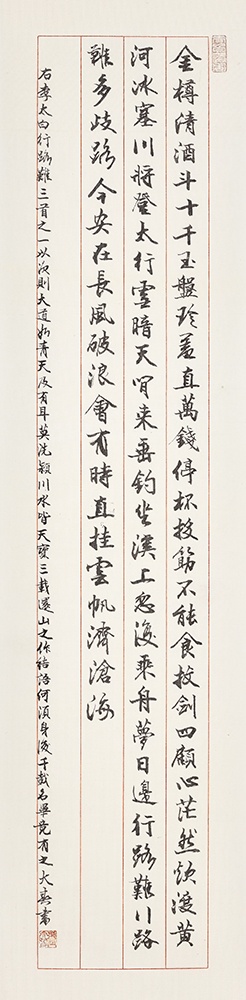 金樽清酒斗十千玉盤珍羞直萬錢停杯投筯不能食拔劍四顧心茫然欲渡黃
河冰塞川將登太行雪暗天閒來垂釣坐溪上忽復乘舟夢日邊行路難行路
難多歧路今安在長風破浪會有時直挂雲帆濟滄海
右李太白行路難三首之一以次則大道如青天及有耳莫洗潁川水皆天寶三載還山之作結語何須身後千載名畢竟有之大書